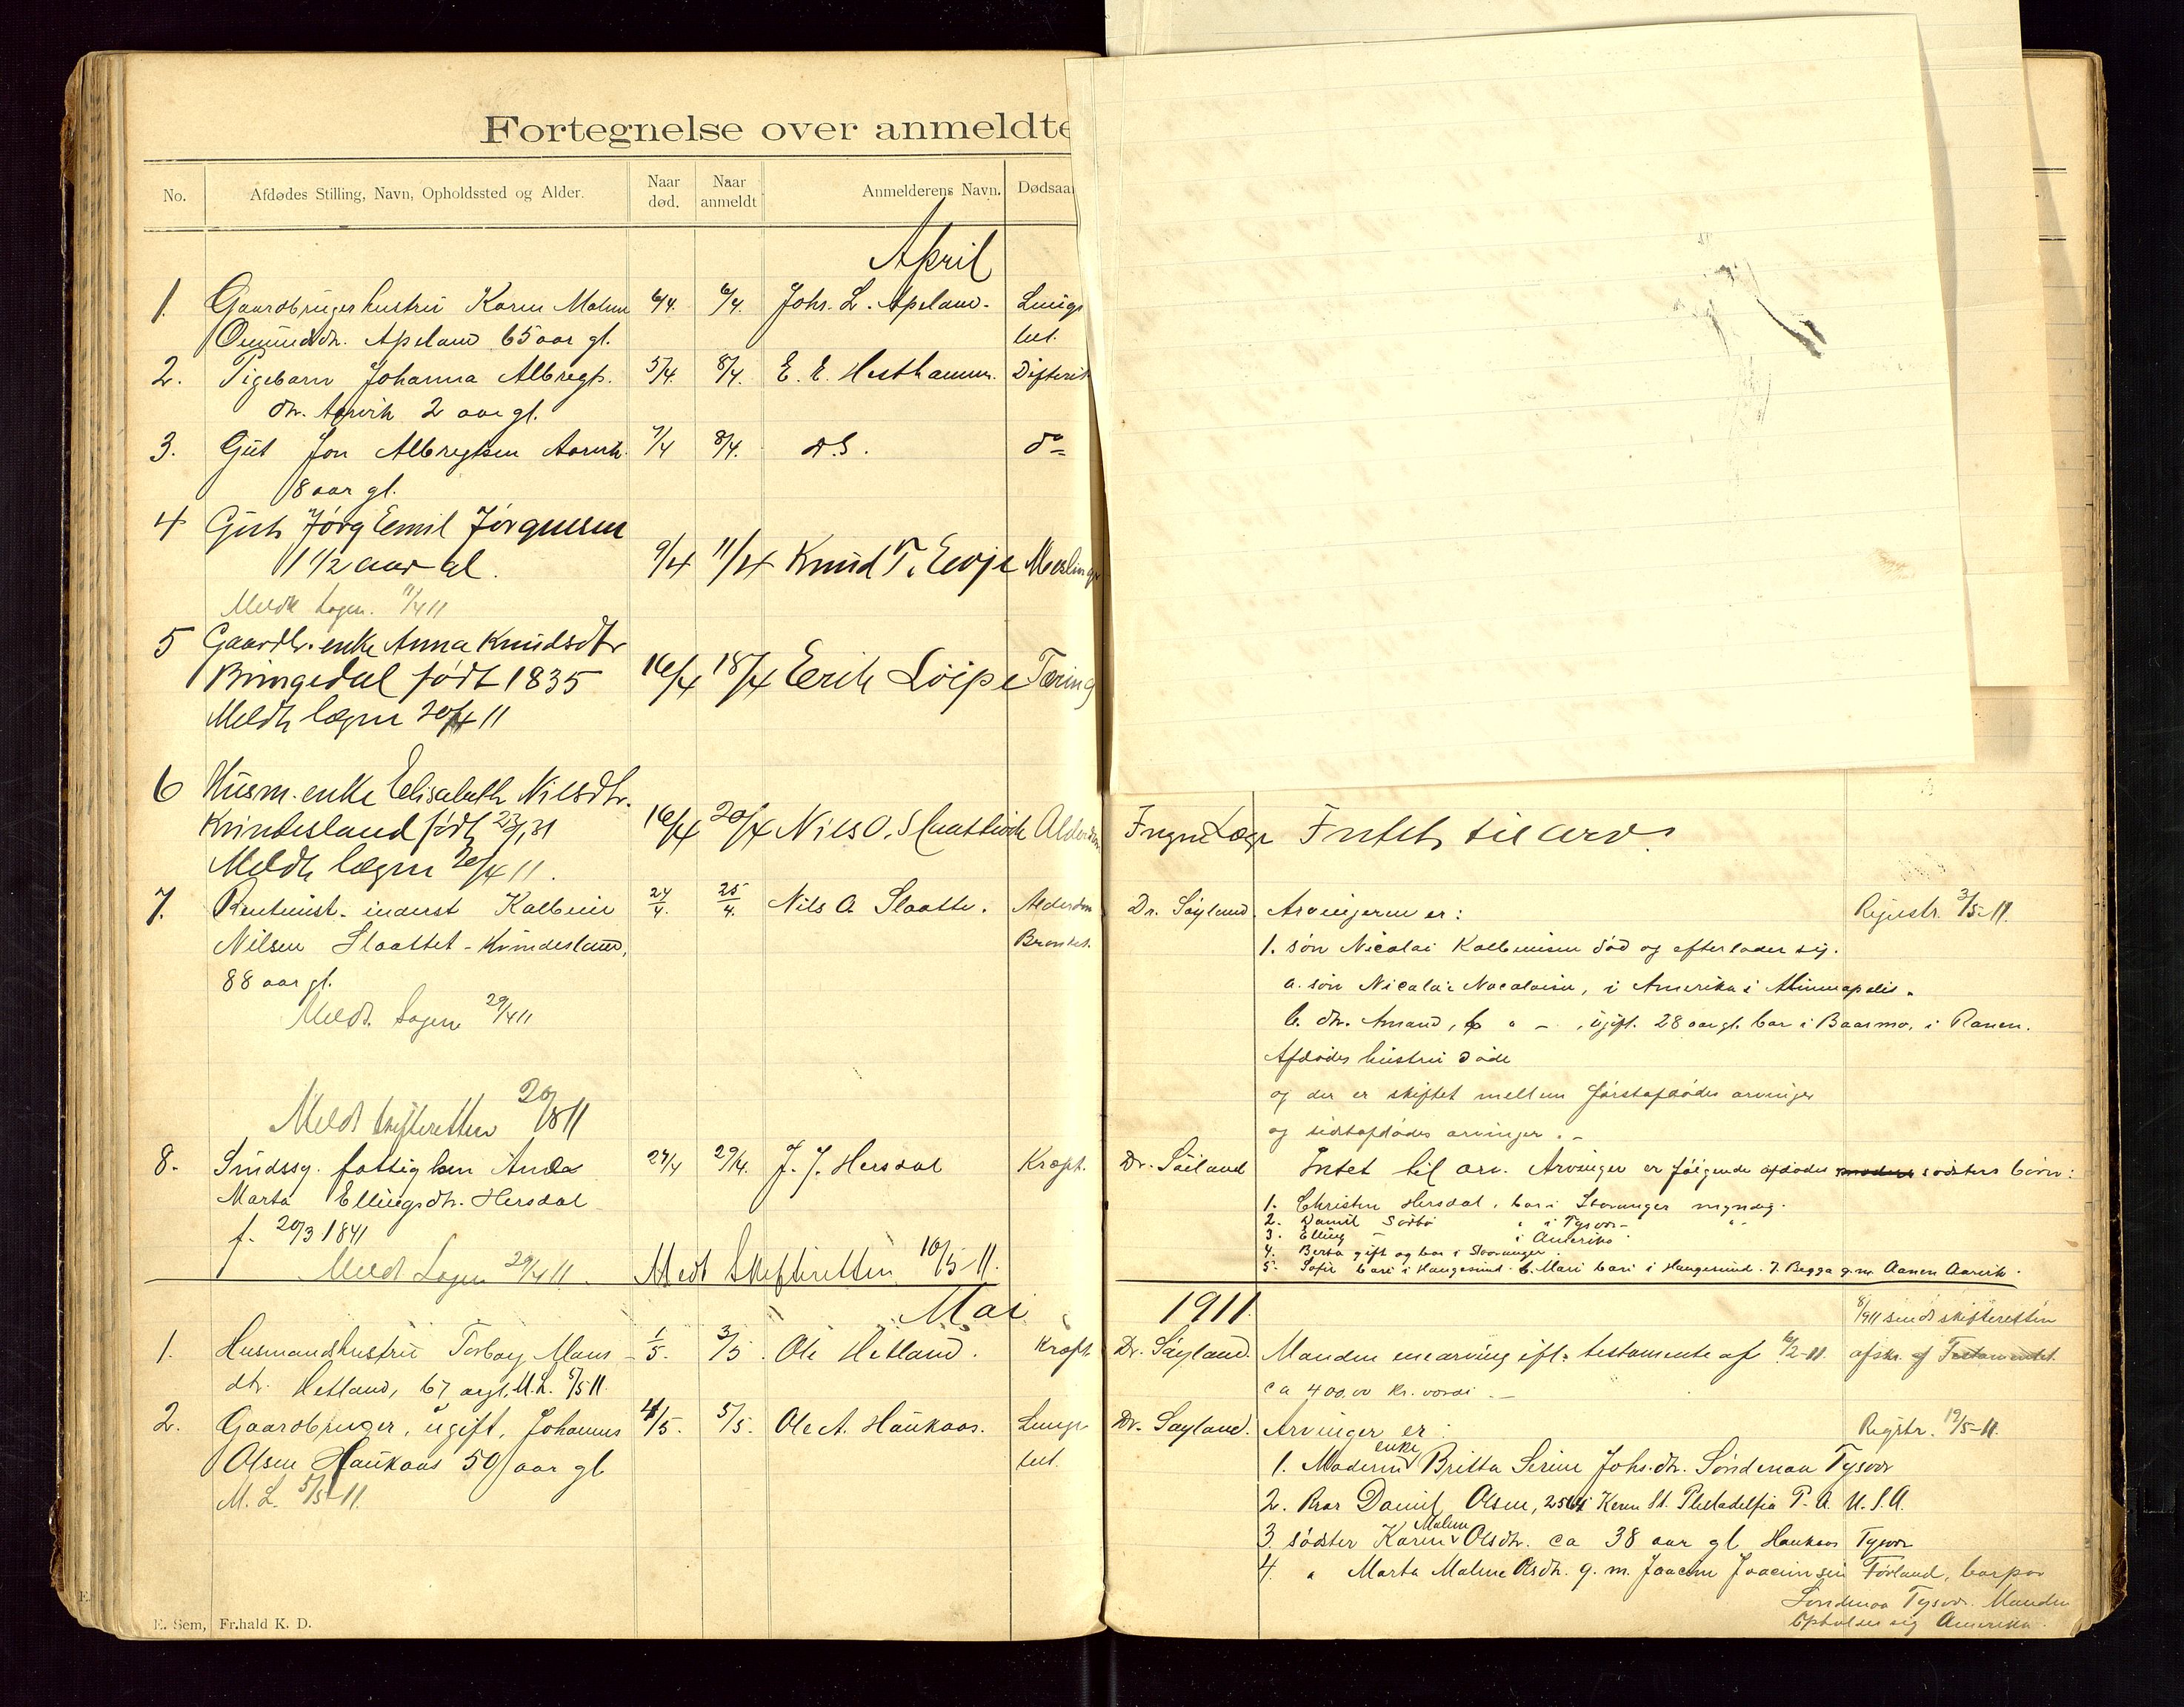 Fortegnelse over anmeldte
No.
Afdødes Stilling, Navn, Opholdssted og Alder.
Naar død.
Naar anmeldt
Anmelderens Navn.
Dødsaa
April
1. Gaardbrugerhustru Karen Malene 6/4. 6/4. Johs. L. Apeland. Lunge
Omundsdtr. Apeland 65 aar gl. bet.
2. Pigebarn Johanna Albregts. 5/4. 8/4. E. E. Hesthammer. Difterit
dtr. Aarvik 2 aar gl.
3. Gut Jon Albregtsen Aarvik 7/4 8/4. d.s. do
8 aar gl.
4 Gut Jørg Emil Jørgensen
1 1/2 aar gl. 9/4 11/4 Knud T. Evje Meslinge
Meldt Lægen. 11/4 11
5 Gaardbr. enke Anna Knudsdtr
Bringedal født 1835 16/4 18/4 Erik Løipe Tæring
Meldt lægen 20/4 11
6 Husm. enke Elisabeth Nilsdtr.
Kvindesland født 23/9 31 16/4 20/4 Nils O. Slaattevik Alderdom Ingen Læge Intet til arv.
Meldt lægen 20/4 11.
7. Rentenist. inderst Kolbein 24/4. 25/4. Nils O. Slaatte. Alderdom Dr. Søyland Arvingerne er: Registr. 3/5-11.
Nilsen Slaattet - Kvindesland, Bronkit. 1. søn Nicolai Kolbeinsen død og efterlader sig.
88 aar gl. a. søn Nicolai Nicolaisen, i Amerika i Minneapolis.
Meldt Lægen 29/4 11 b. dtr. Amand, " - , ugift. 28 aar gl. bor i Baasmo, i Ranen.
Afdødes hustru døde
og der er skiftet mellem førstafdødes arvinger
Meldt skifteretten 20/8 11
og sidstafdødes arvinger. -
8. Sindssyg. fattiglem Anda 27/4 29/4. J. J. Hersdal Kræft. Dr. Søiland Intet til arv. Arvinger er følgende afdødes søsters børn:
Marta Ellingsdtr. Hersdal 1. Christen Hersdal, bor i Stavanger myndig.
2. Daniel Sørbø " i Tysvær - " -
f. 20/3 1841 3. Elling - i Amerika
4. Berta gift og bor i Stavanger.
Meldt Lægen 29/4 11. Meldt Skifteretten 10/5-11. 5. Sofie bor i Haugesund. 6. Mari bor i Haugesund. 7. Begga g.m. Aanen Aarvik.
Mai 1911.
8/9 11 sendt skifteretten
1. Husmandshustru Torborg Mons- 1/5. 3/5. Ole Hetland. Kræft Dr. Søyland. Manden enearving ifl. testamente af 6/2-11. afskr. af Testamentet.
dtr. Hetland, 67 aar gl. M.L. 5/5 11. ca 400.00 kr. værdi. -
2. Gaardbruger, ugift, Johannes 4/5. 5/5. Ole A. Haukaas. Lunge Dr. Søyland. Arvinger er: Registr. 19/5-11.
Olsen Haukaas 50 aar gl bet. 1. Moderen enke Britta Serine Johs.dtr. Søndenaa Tysvær
M. L. 5/5-11. 2. Bror Daniel Olsen, Kern St. Philadelfia P. A. U. S. A.
3. søster Karen Malene Olsdtr. ca 38 aar gl Haukaas Tysvær
4. " Marta Malene Olsdtr. g. m. Joacim Joacimsen Førland, bor paa
Søndenaa Tysvær. Manden
opholder sig Amerika.
E. Sem, Fr.hald K. D.